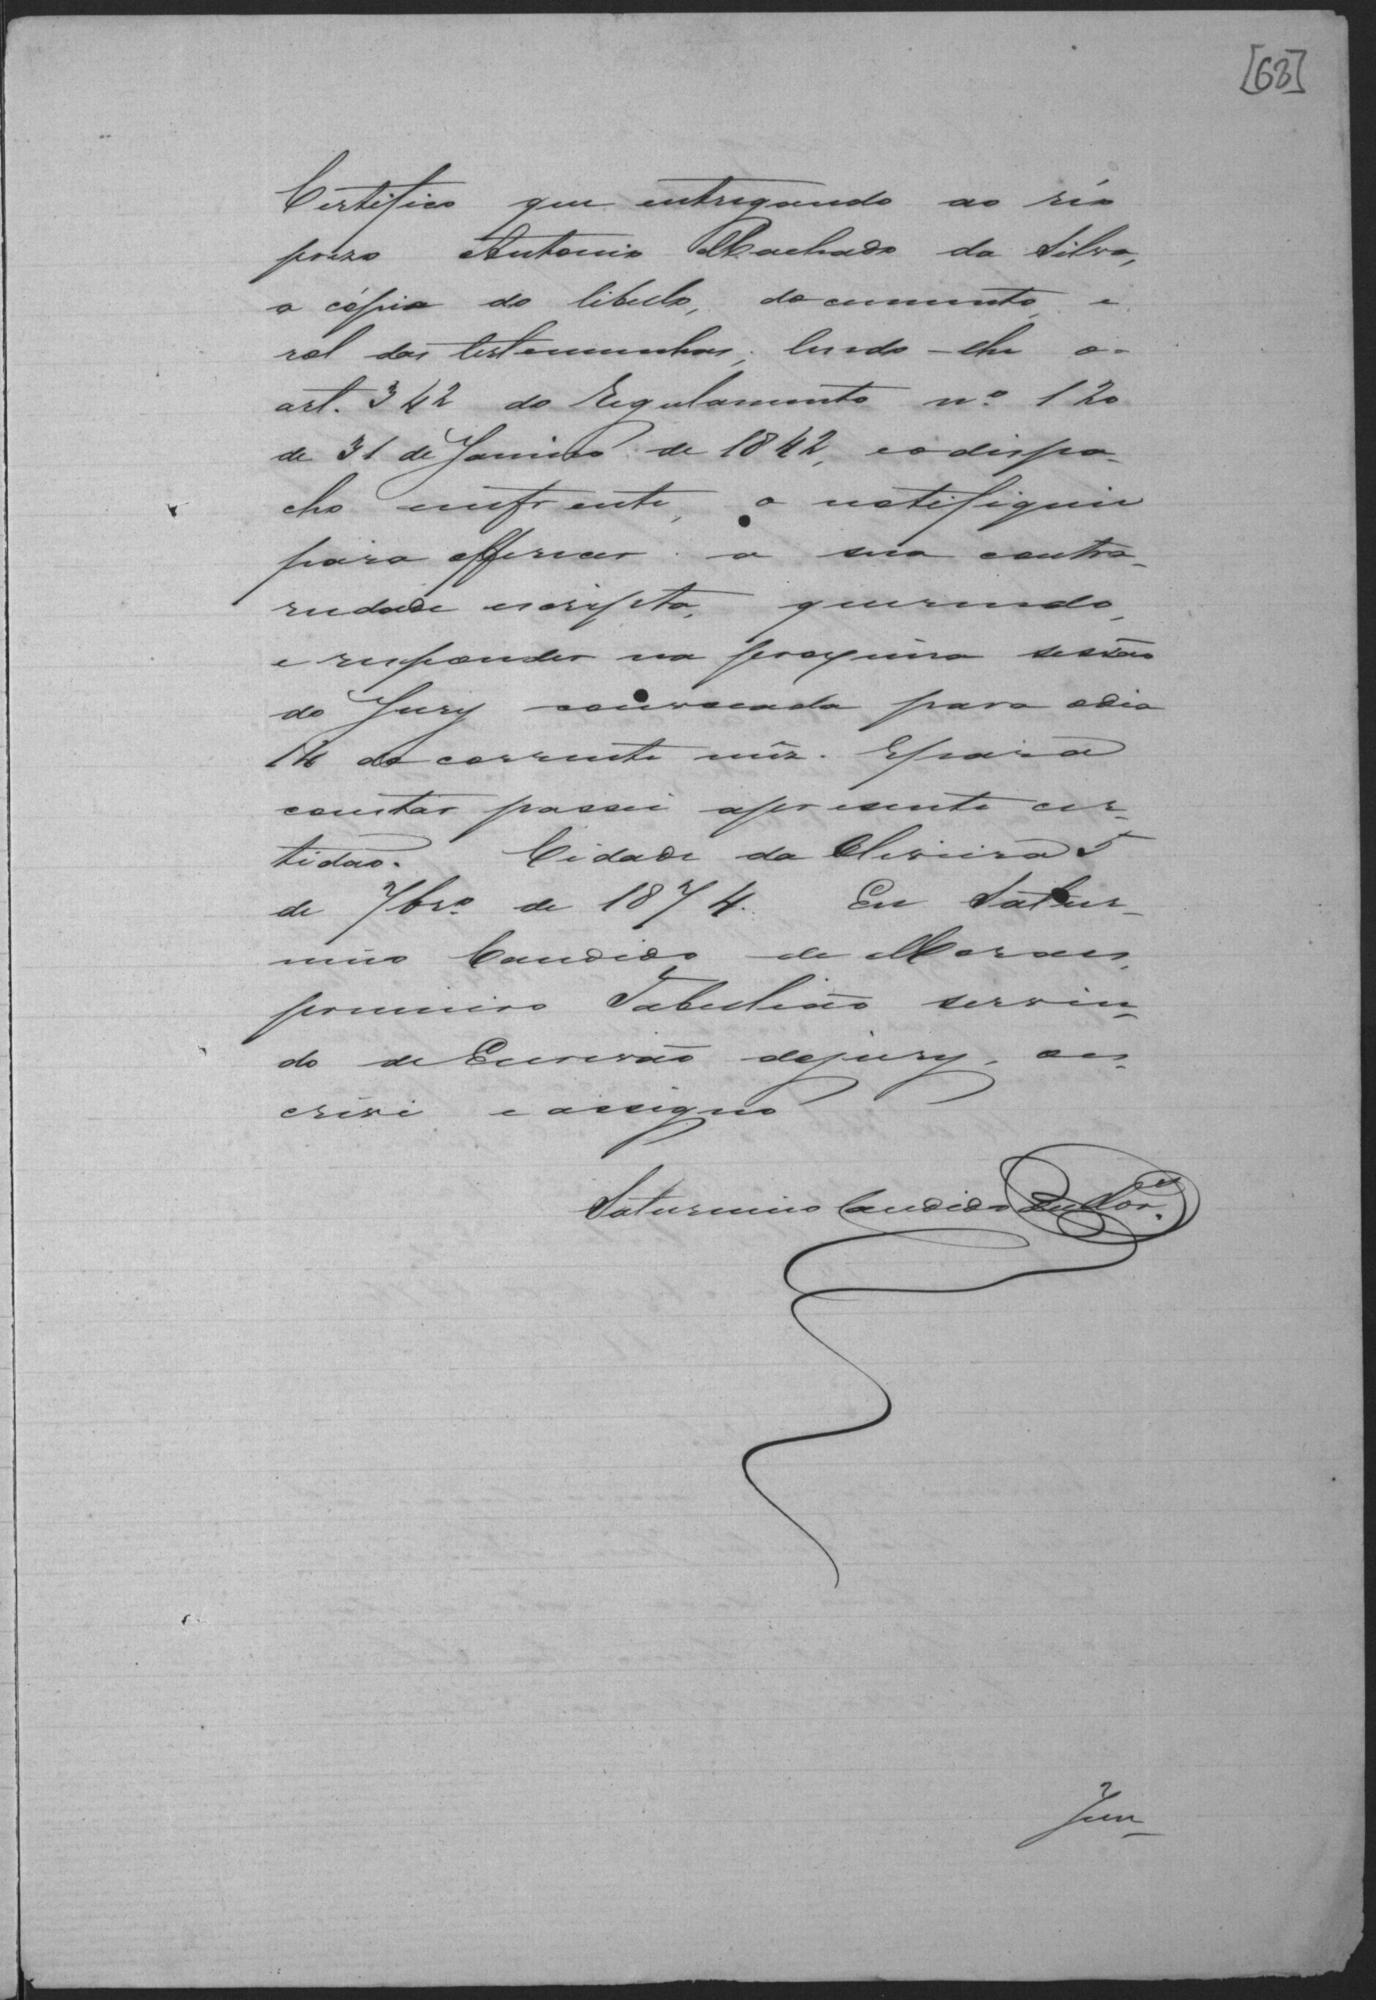 [63]
Certifico que entregando ao réo
prezo Antonio Machado da Silva,
a cópia do libello, documento, e
rol das testemunhas, lendo-lhe o
art. 342 do Regulamento nº 120
de 31 de Janeiro de 1842, e o dispa-
cho enfrente, o notifiquei
para offerecer a sua contra-
riedade escripta, querendo,
e responder na proxima sessão
do Jury convocada para o dia
14 do corrente mêz. E para
constar passei a presente cer-
tidão. Cidade da Oliveira 5
de 7brº de 1874. Eu Satur-
nino Candido de Moraes,
primeiro Tabellião servin-
do de Escrivão do jury, o es-
crivi e assigno
Saturnino Candido de Mor.es
Jun-